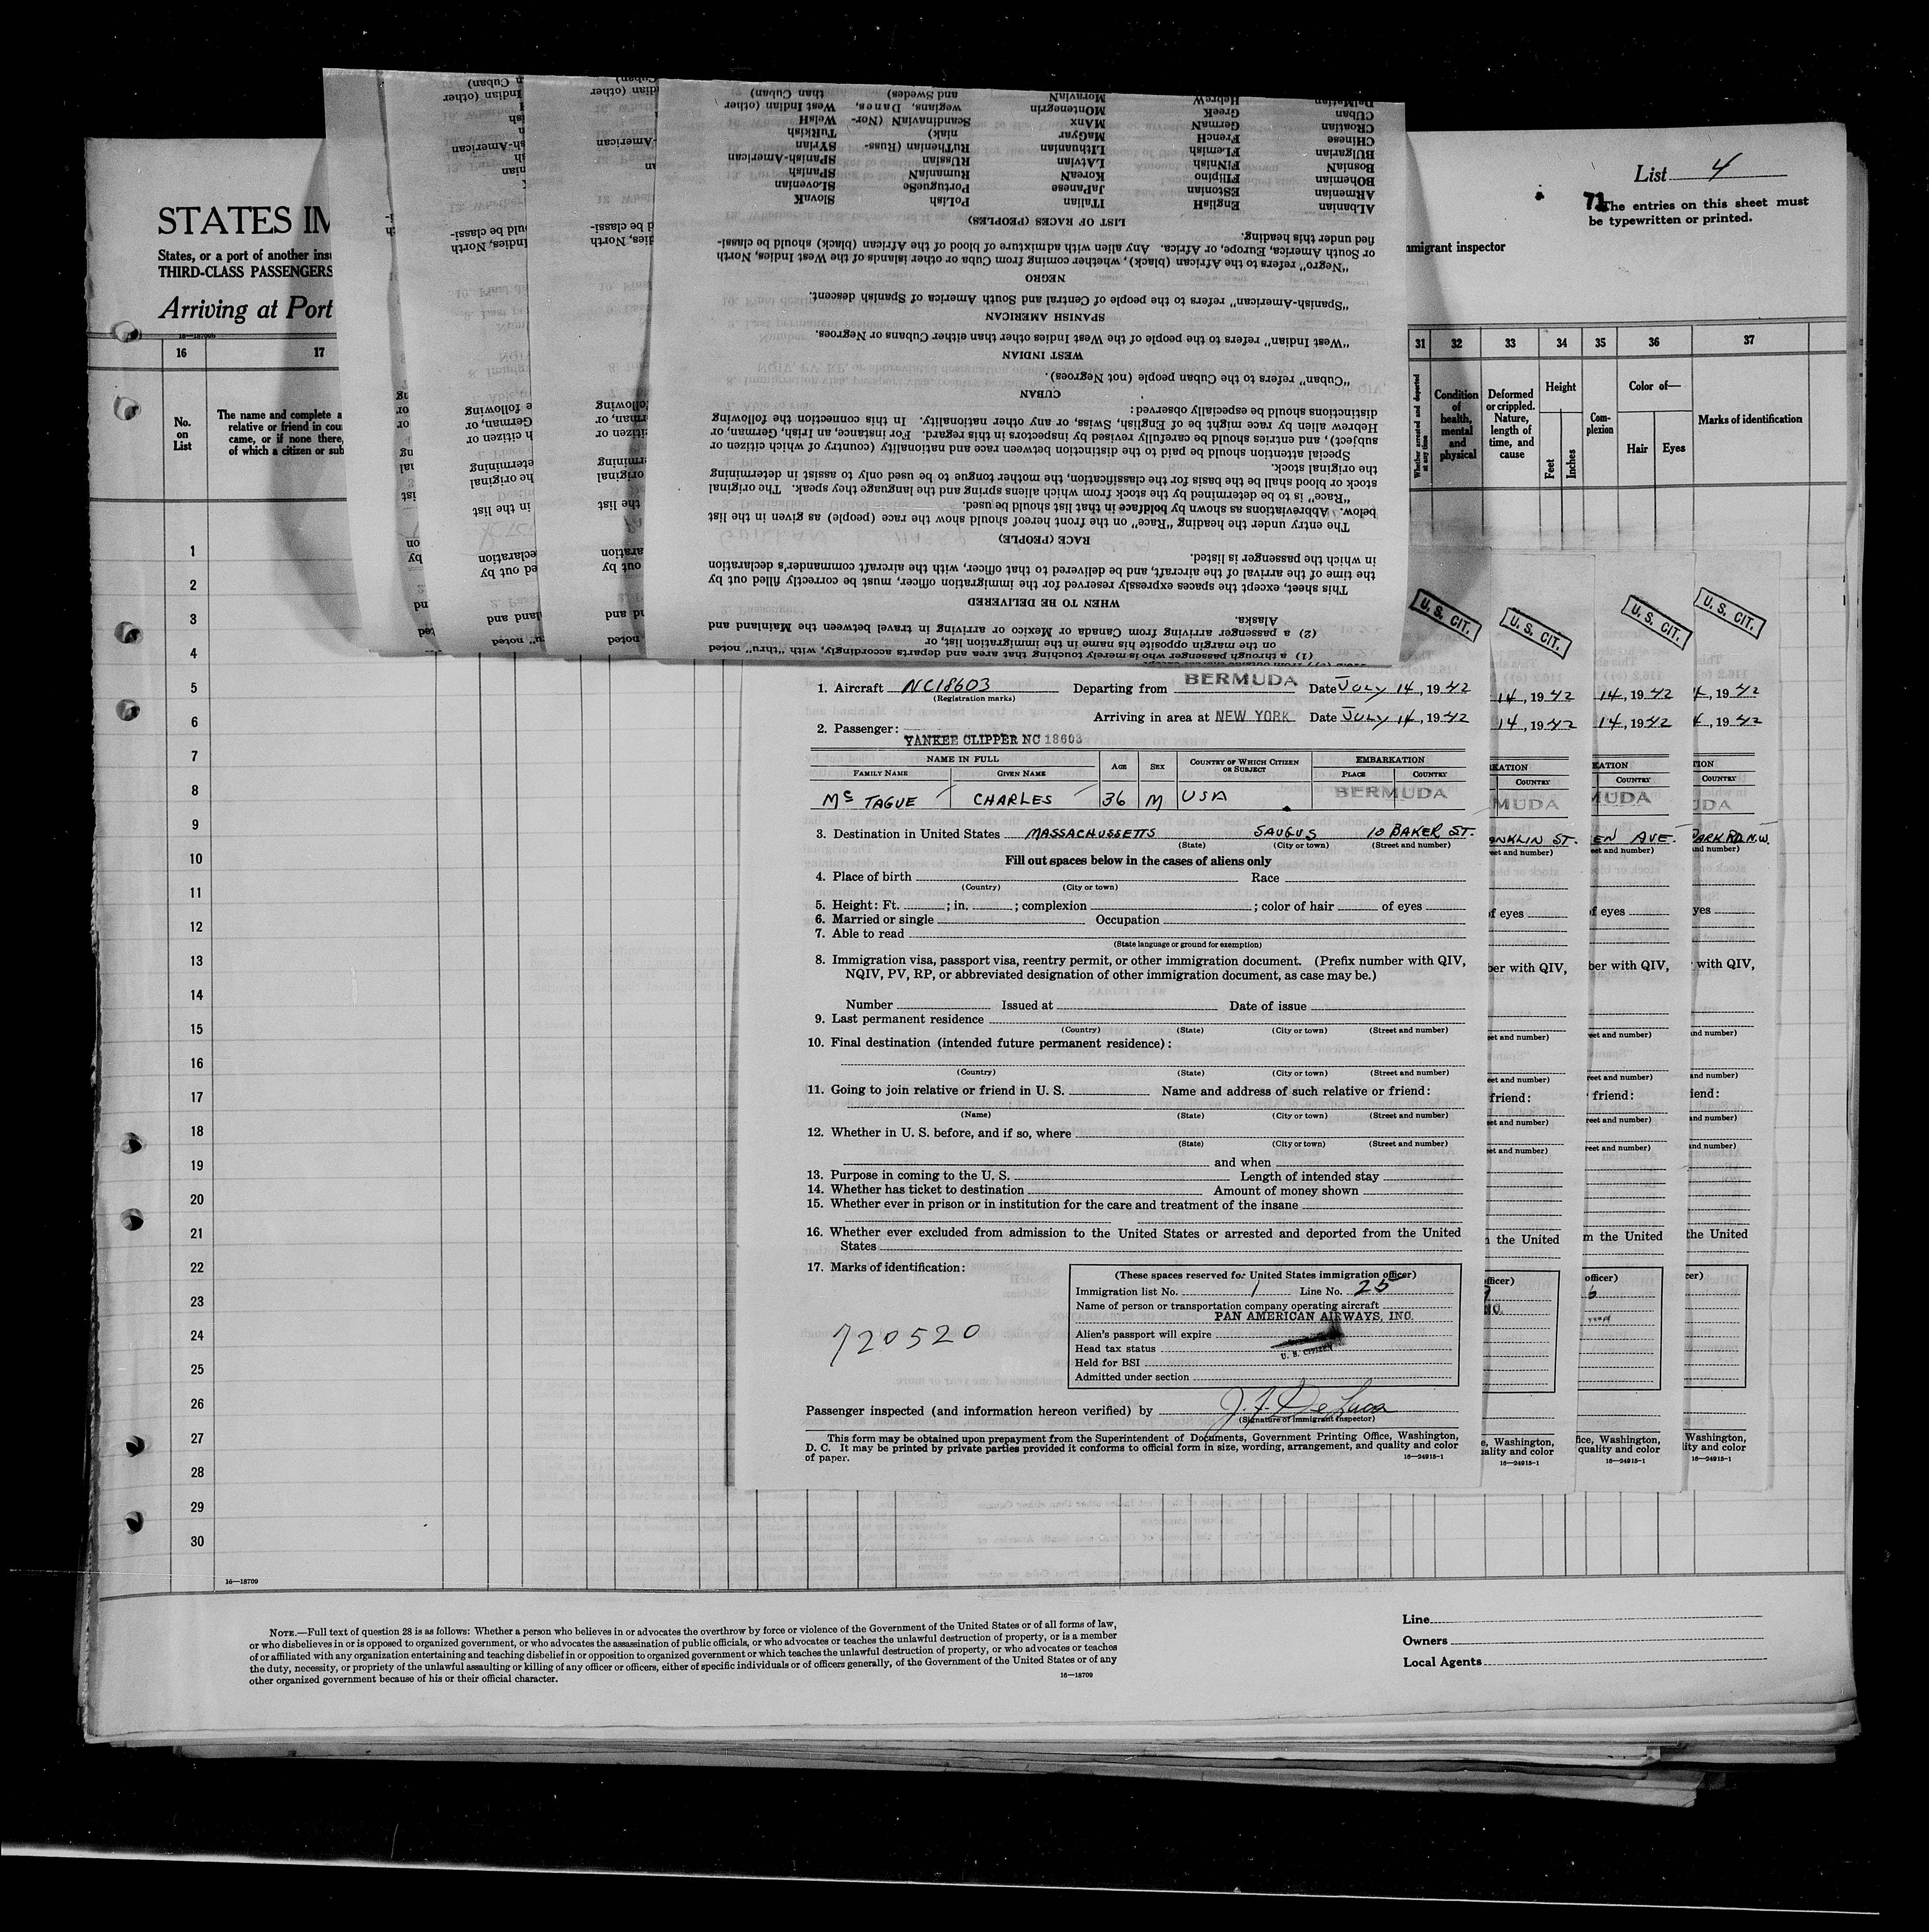 STATES IM
States, or a port of another insu
THIRD-CLASS PASSENGERS
Arriving at Port
List 4
71
The entries on this sheet must
be typewritten or printed.
mmigrant inspector
16 17
No. on List
The name and complete a
relative or friend in cou
came, or if none there,
of which a citizen or sub
31 32 33 34 35 36 37
Whether arrested and deported at any time
Condition of health, mental and physical
Deformed or crippled. Nature, length of time, and cause
Height
Feet Inches
Complexion
Color of—
Hair Eyes
Marks of identification
1
2
3
4
5
6
7
8
9
10
11
12
13
14
15
16
17
18
19
20
21
22
23
24
25
26
27
28
29
30
16—18709
(1) a through passenger who is merely touching that area and departs accordingly, with “thru” noted
on the margin opposite his name in the immigration list, or
(2) a passenger arriving from Canada or Mexico or arriving in travel between the Mainland and
Alaska.
WHEN TO BE DELIVERED
This sheet, except the spaces expressly reserved for the immigration officer, must be correctly filled out by
the time of the arrival of the aircraft, and be delivered to that officer, with the aircraft commander's declaration
in which the passenger is listed.
RACE (PEOPLE)
The entry under the heading “Race” on the front hereof should show the race (people) as given in the list
below. Abbreviations as shown by boldface in that list should be used.
“Race” is to be determined by the stock from which aliens spring and the language they speak. The original
stock or blood shall be the basis for the classification, the mother tongue to be used only to assist in determining
the original stock.
Special attention should be paid to the distinction between race and nationality (country of which citizen or
subject), and entries should be carefully revised by inspectors in this regard. For instance, an Irish, German, or
Hebrew alien by race might be of English, Swiss, or any other nationality. In this connection the following
distinctions should be especially observed:
CUBAN
“Cuban” refers to the Cuban people (not Negroes).
WEST INDIAN
“West Indian” refers to the people of the West Indies other than either Cubans or Negroes.
SPANISH AMERICAN
“Spanish-American” refers to the people of Central and South America of Spanish descent.
NEGRO
“Negro” refers to the African (black), whether coming from Cuba or other islands of the West Indies, North
or South America, Europe, or Africa. Any alien with admixture of blood of the African (black) should be classi-
fied under this heading.
LIST OF RACES (PEOPLES)
ALbanian EnglisH ITalian PoLish SlovaK
ARmenian EStonian JaPanese PortugueSe SLOvenian
BOhemian FIlipino KoreaN RumaniaN SPanisH
BosniaN FiNnish LAtvian RUSsian SPanish-American
BUlgarian FLemish LIthuanian RuThenian (Russ- SYrian
CHinese FrencH MaGyar niak) TuRKish
CRoatian GermaN MAnx ScandinaviaN (Nor- WelsH
CUban GreeK MOntenegrin wegians, Danes, West Indian (other
DalMatian HebreW MoraviaN and Swedes) than Cuban)
1. Aircraft NC18603 Departing from BERMUDA Date JULY 14, 1942
(Registration marks)
Arriving in area at NEW YORK Date JULY 14, 1942
2. Passenger:
YANKEE CLIPPER NC 18603
NAME IN FULL AGE SEX COUNTRY OF WHICH CITIZEN OR SUBJECT EMBARKATION
FAMILY NAME GIVEN NAME PLACE COUNTRY
Mc TAGUE CHARLES 36 M USA BERMUDA
3. Destination in United States MASSACHUSSETTS SAUGUS 10 BAKER ST.
(State) (City or town) (Street and number)
Fill out spaces below in the cases of aliens only
4. Place of birth Race
(Country) (City or town)
5. Height: Ft. ; in. ; complexion ; color of hair of eyes
6. Married or single Occupation
7. Able to read
(State language or ground for exemption)
8. Immigration visa, passport visa, reentry permit, or other immigration document. (Prefix number with QIV,
NQIV, PV, RP, or abbreviated designation of other immigration document, as case may be.)
Number Issued at Date of issue
9. Last permanent residence
(Country) (State) (City or town) (Street and number)
10. Final destination (intended future permanent residence):
(Country) (State) (City or town) (Street and number)
11. Going to join relative or friend in U. S. Name and address of such relative or friend:
(Name) (State) (City or town) (Street and number)
12. Whether in U. S. before, and if so, where
(State) (City or town) (Street and number)
and when
13. Purpose in coming to the U. S. Length of intended stay
14. Whether has ticket to destination Amount of money shown
15. Whether ever in prison or in institution for the care and treatment of the insane
16. Whether ever excluded from admission to the United States or arrested and deported from the United
States
17. Marks of identification:
720520
(These spaces reserved for United States immigration officer)
Immigration list No. 1 Line No. 25
Name of person or transportation company operating aircraft
PAN AMERICAN AIRWAYS, INC.
Alien's passport will expire
Head tax status U. S. CITIZEN
Held for BSI
Admitted under section
Passenger inspected (and information hereon verified) by J. F. De Luca
(Signature of immigrant inspector)
This form may be obtained upon prepayment from the Superintendent of Documents, Government Printing Office, Washington,
D. C. It may be printed by private parties provided it conforms to official form in size, wording, arrangement, and quality and color
of paper. 16—24915-1
U. S. CIT.
U. S. CIT.
U. S. CIT.
U. S. CIT.
14, 1942
14, 1942
MUDA
NKLIN ST.
14, 1942
14, 1942
MUDA
EN AVE.
, 1942
, 1942
UDA
PARK RD. N.W.
NOTE.—Full text of question 28 is as follows: Whether a person who believes in or advocates the overthrow by force or violence of the Government of the United States or of all forms of law,
or who disbelieves in or is opposed to organized government, or who advocates the assassination of public officials, or who advocates or teaches the unlawful destruction of property, or is a member
of or affiliated with any organization entertaining and teaching disbelief in or opposition to organized government or which teaches the unlawful destruction of property, or who advocates or teaches
the duty, necessity, or propriety of the unlawful assaulting or killing of any officer or officers, either of specific individuals or of officers generally, of the Government of the United States or of any
other organized government because of his or their official character. 16—18709
Line
Owners
Local Agents